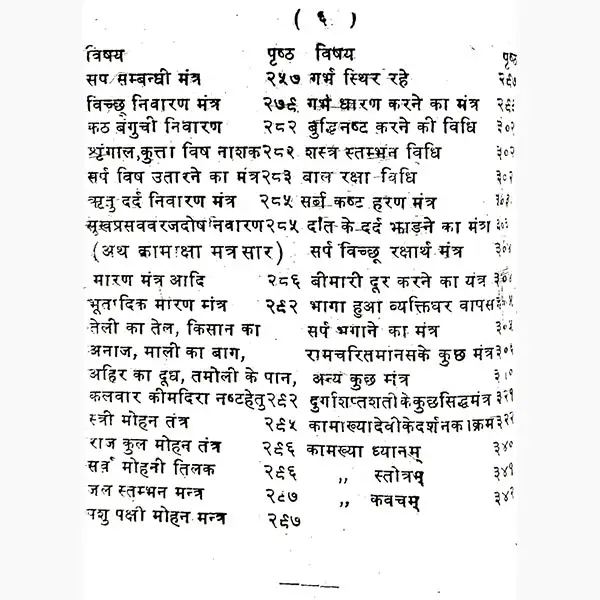 ( ६ )
विषय पृष्ठ
सप सम्बन्धी मंत्र २५७
विच्छू निवारण मंत्र २७९
कठ बंगुची निवारण २८२
श्रृंगाल,कुत्ता विष नाशक २८२
सर्प विष उतारने का मंत्र २८३
ऋतु दर्द निवारण मंत्र २८५
सुखप्रसववरजदोष निवारण २८५
(अथ क्रामाक्षा मत्रसार)
मारण मंत्र आदि २८६
भूतादिक मारण मंत्र २९२
तेली का तेल, किसान का
अनाज, माली का बाग,
अहिर का दूध, तमोली के पान,
कलवार कीमदिरा नष्टहेतु २९२
स्त्री मोहन तंत्र २९५
राज कुल मोहन तंत्र २९६
सर्व मोहनी तिलक २९६
जल स्तम्भन मन्त्र २८७
पशु पक्षी मोहन मन्त्र २९७
विषय पृष्ठ
गर्भ स्थिर रहे २९७
गर्भ धारण करने का मंत्र
बुद्धिनष्ट करने की विधि ३०२
शस्त्र स्तम्भन विधि ३०२
बाल रक्षा विधि ३०२
सर्ब कष्ट हरण मंत्र
दांत के दर्द झाड़ने का मंत्र ३०३
सर्प विच्छू रक्षार्थ मंत्र ३०४
बीमारी दूर करने का यंत्र ३०४
भागा हुआ व्यक्तिघर वापस ३०५
सर्प भगाने का मंत्र ३०५
रामचरितमानसके कुछ मंत्र
अन्य कुछ मंत्र
दुर्गाशप्तशतीकेकुछसिद्धमंत्र ३२१
कामाख्यादेवीकेदर्शनकाक्रम ३२२
कामख्या ध्यानम् ३४०
,, स्तोत्रम् ३४१
,, कवचम्